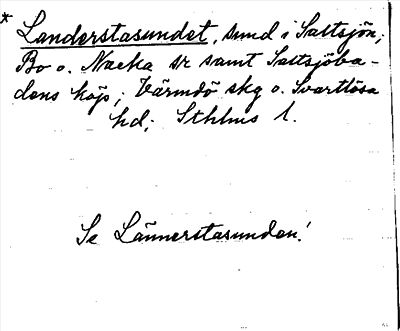 * Landerstasundet, sund i Saltsjön;
Bo o. Nacka sr samt Saltsjöba-
dens köp; Värmdö skg o. Svartlösa
hd; Sthlms l.
Se Lännerstasunden!